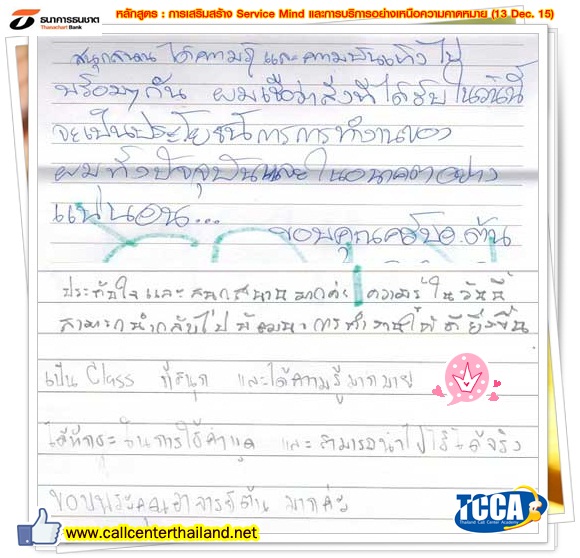 ธนาคารธนชาต
Thanachart Bank
หลักสูตร : การเสริมสร้าง Service Mind และการบริการอย่างเหนือความคาดหมาย (13 Dec. 15)
สนุกสนาน ได้ความรู้ และความบันเทิง ไป
พร้อมๆ กัน ผมเชื่อว่าสิ่งที่ ได้รับ ในวันนี้
จะเป็นประโยชน์การการทำงานของ
ผมทั้งปัจจุบันและในอนาคตอย่าง
แน่นอน...
ขอบคุณครับอ.ต้น
ประทับใจและสนุกสนานมากค่ะ ความรู้ในวันนี้
สามารถนำกลับไปพัฒนาการทำงานให้ดียิ่งขึ้น
เป็น Class ที่สนุก และได้ความรู้มากมาย
ได้ทักษะในการใช้คำพูด และสามารถนำไปใช้ได้จริง
ขอบพระคุณอาจารย์ต้น มากค่ะ
www.callcenterthailand.net
TCCA
Thailand Call Center Academy